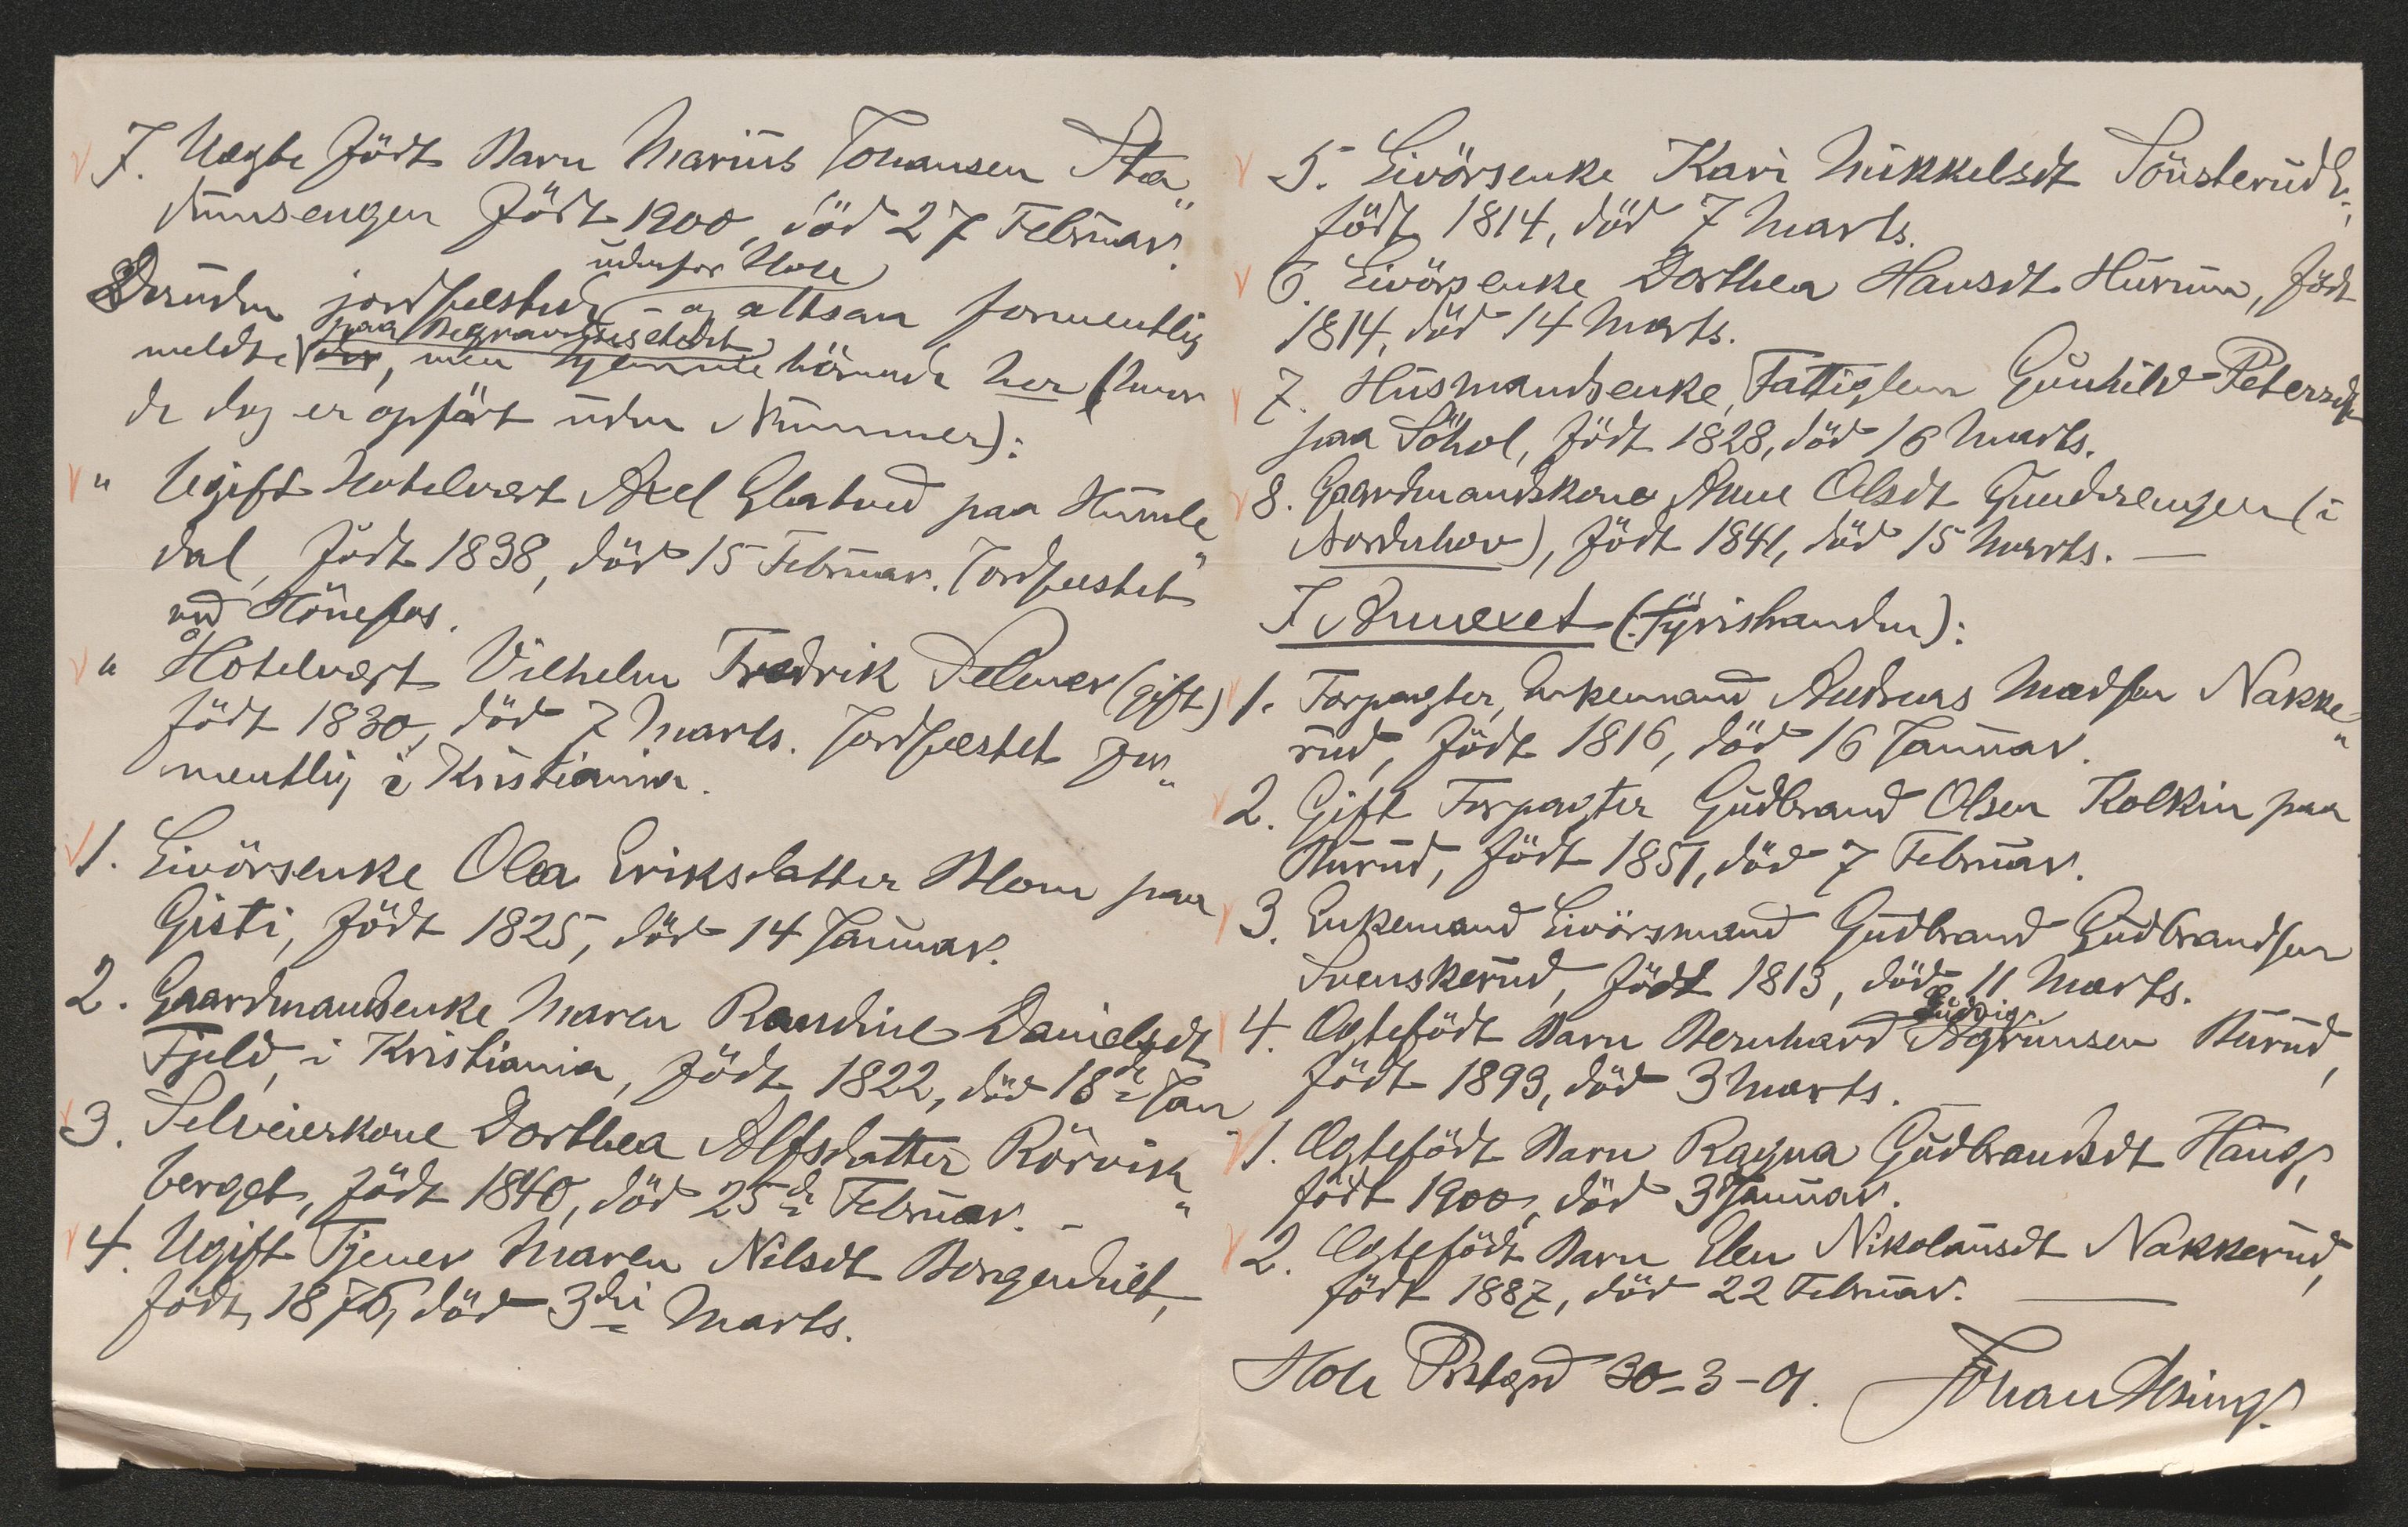 7. Uegte födt Barn Marius Johansen Sta„
dumsengen födt 1900, död 27 Februar.
udenfor Hole
Desuden jordfæstede – og altsaa formentlig
paa Begravelsesstedet
meldte der, men hjemmehörende her (hvor
de dog er opfört uden Nummer):
" Ugift Hotelvært Axel Glatved paa Humle„
dal, födt 1838, död 15 Februar. Jordfæstet
ved Hönefos.
" Hotelvært Vilhelm Fredrik Selmer (gift)
födt 1830, död 7 Marts. Jordfæstet for„
mentlig i Kristiania.
1. Livörsenke Olea Eriksdatter Blom paa
Gisti, födt 1825, död 14 Januar.
2. Gaardmandsenke Maren Randine Danielsdt
Fjeld, i Kristiania, födt 1822, död 18de Jan
3. Selveierkone Dorthea Alfsdatter Rörvik„
berget, födt 1840, död 25de Februar. –
4. Ugift Tjener Maren Nilsdt Borgenhilt,
födt 1876, död 3die Marts.
5. Livörsenke Kari Mikkelsdt Sönsterud E.,
födt 1814, död 7 Marts.
6. Livörsenke Dorthea Hansdt Hurum, födt
1814, död 14 Marts.
7. Husmandsenke, Fattiglem Gunhild Petersdt
paa Söhol, födt 1828, död 16 Marts.
8. Gaardmandskone Anne Olsdt Gundersengen (i
Norderhov), födt 1841, död 15 Marts. —
I Annexet (Tyristranden):
1. Forpagter, Enkemand Andreas Madsen Nakke„
rud, födt 1816, död 16 Januar.
2. Gift Forpagter Gudbrand Olsen Kolkin paa
Burud, födt 1851, död 7 Februar.
3. Enkemand Livörsmand Gudbrand Gudbrandsen
Svenskerud, födt 1813, död 11 Marts.
Ludvig
4. Ægtefödt Barn Bernhard Agrimsen Burud,
födt 1893, död 3 Marts. –
1. Ægtefödt Barn Ragna Gudbrandsdt Haug,
födt 1900, död 3 Januar.
2. Ægtefödt Barn Elen Nikolausdt Nakkerud,
födt 1887, död 22 Februar. —
Hole Prstgrd 30-3-01. Johan Msing.